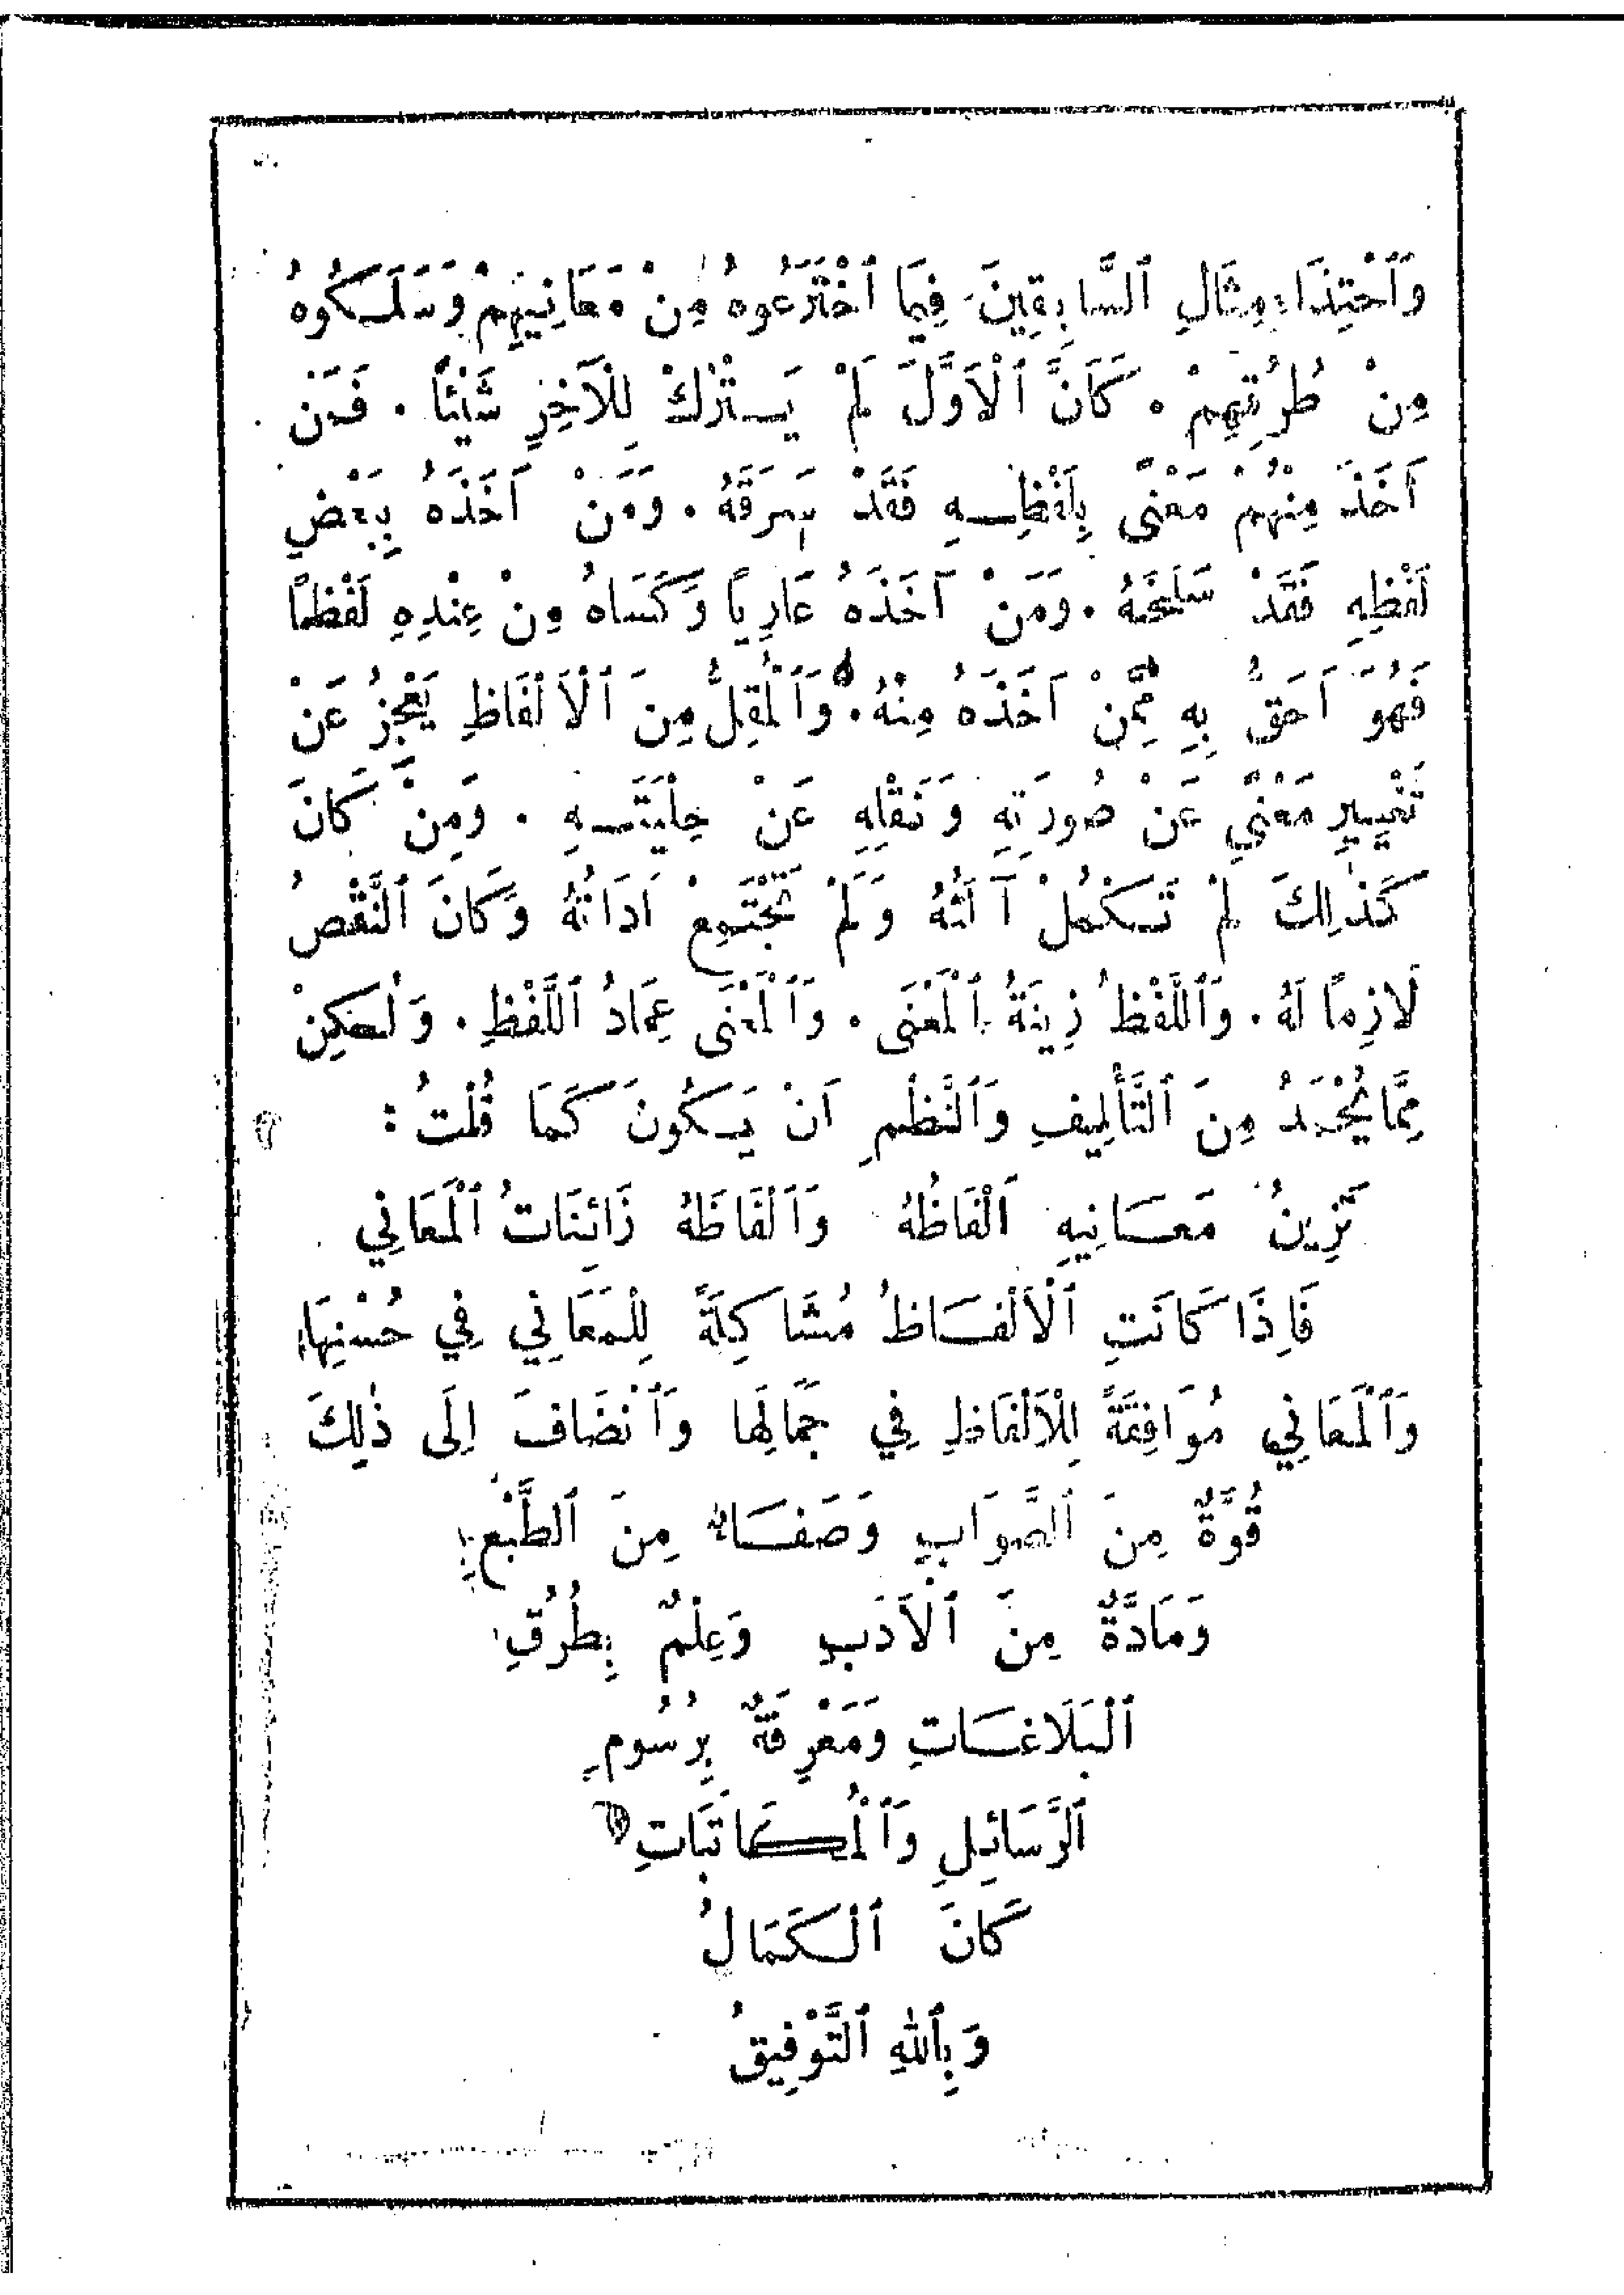 وَٱحْتِذَاءِ مِثَالِ ٱلسَّابِقِينَ فِيمَا ٱخْتَرَعُوهُ مِنْ مَعَانِيهِمْ وَسَلَكُوهُ
مِنْ طُرُقِهِمْ . كَاَنَّ ٱلْاَوَّلَ لَمْ يَتْرُكْ لِلْآخِرِ شَيْئاً . فَمَنْ
اَخَذَ مِنْهُمْ مَعْنًى بِلَفْظِهِ فَقَدْ سَرَقَهُ . وَمَنْ اَخَذَهُ بِبَعْضِ
لَفْظِهِ فَقَدْ سَلَخَهُ . وَمَنْ اَخَذَهُ عَارِياً وَكَسَاهُ مِنْ عِنْدِهِ لَفْظاً
فَهُوَ اَحَقُّ بِهِ مِمَّنْ اَخَذَهُ مِنْهُ . وَٱلْمُقِلُّ مِنَ ٱلْاَلْفَاظِ يَعْجِزُ عَنْ
تَغْيِيرِ مَعْنًى عَنْ صُورَتِهِ وَنَقْلِهِ عَنْ حِلْيَتِهِ . وَمَنْ كَانَ
كَذٰلِكَ لَمْ تَكْمُلْ آلَتُهُ وَلَمْ تَجْتَمِعْ اَدَاتُهُ وَكَانَ ٱلنَّقْصُ
لَازِماً لَهُ . وَٱللَّفْظُ زِينَةُ ٱلْمَعْنَى . وَٱلْمَعْنَى عِمَادُ ٱللَّفْظِ . وَلٰكِنْ
مِمَّا يُحْمَدُ مِنَ ٱلتَّأْلِيفِ وَٱلنَّظْمِ اَنْ يَكُونَ كَمَا قُلْتُ :
تَزِينُ مَعَانِيهِ اَلْفَاظُهُ وَاَلْفَاظَهُ زَائِنَاتُ ٱلْمَعَانِي
فَاِذَا كَانَتِ ٱلْاَلْفَاظُ مُشَاكِلَةً لِلْمَعَانِي فِي حُسْنِهَا
وَٱلْمَعَانِي مُوَافِقَةً لِلْاَلْفَاظِ فِي جَمَالِهَا وَٱنْضَافَ اِلَى ذٰلِكَ
قُوَّةٌ مِنَ ٱلصَّوَابِ وَصَفَاءٌ مِنَ ٱلطَّبْعِ
وَمَادَّةٌ مِنَ ٱلْاَدَبِ وَعِلْمٌ بِطُرُقِ
ٱلْبَلَاغَاتِ وَمَعْرِفَةٌ بِرُسُومِ
ٱلرَّسَائِلِ وَٱلْمُكَاتَبَاتِ
كَانَ ٱلْكَمَالُ
وَبِٱللهِ ٱلتَّوْفِيقُ